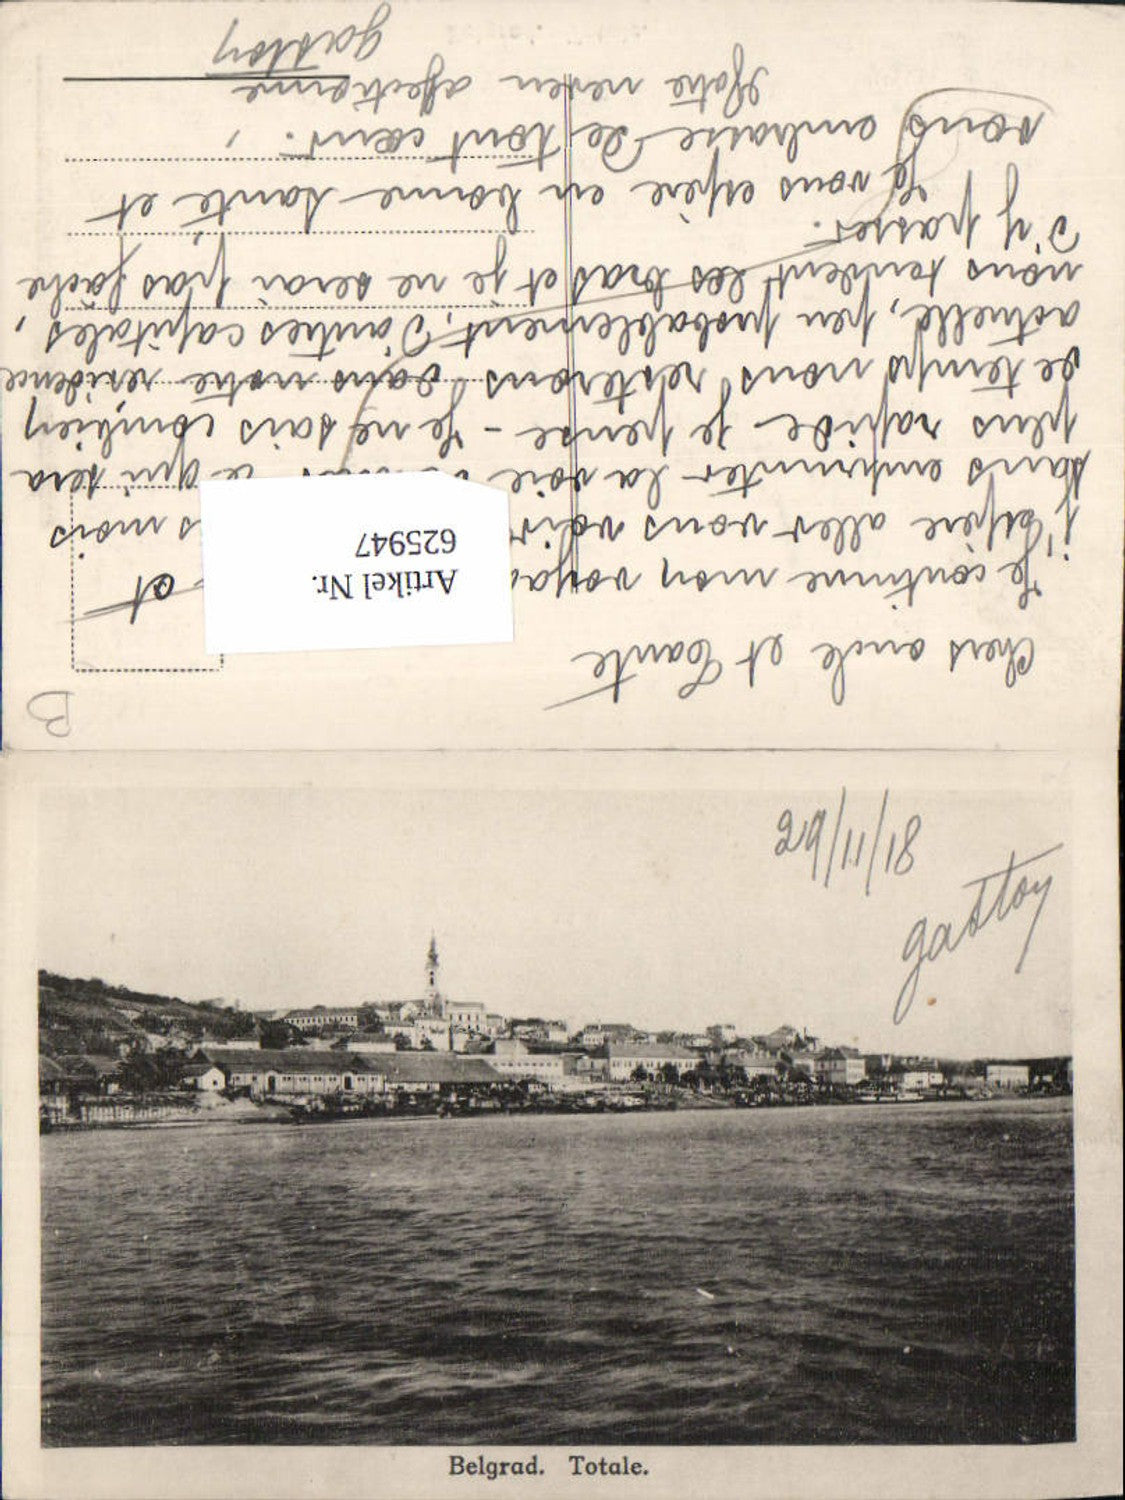 Chers oncle et Tante
Je continue mon voya et
j'espère aller vous voir s mois
sans emprunter la voie ce qui sera
plus rapide je pense - Je ne sais combien
de temps nous resterons dans notre résidence
actuelle, peu probablement, d'autres capitales,
nous tendent les bras et je ne serai pas fâché
d'y passer.
Je vous espère en bonne santé et
vous embrasse de tout cœur.
Notre neveu affectionné
gaston
B
Artikel Nr.
625947
29/11/18
gaston
Belgrad. Totale.